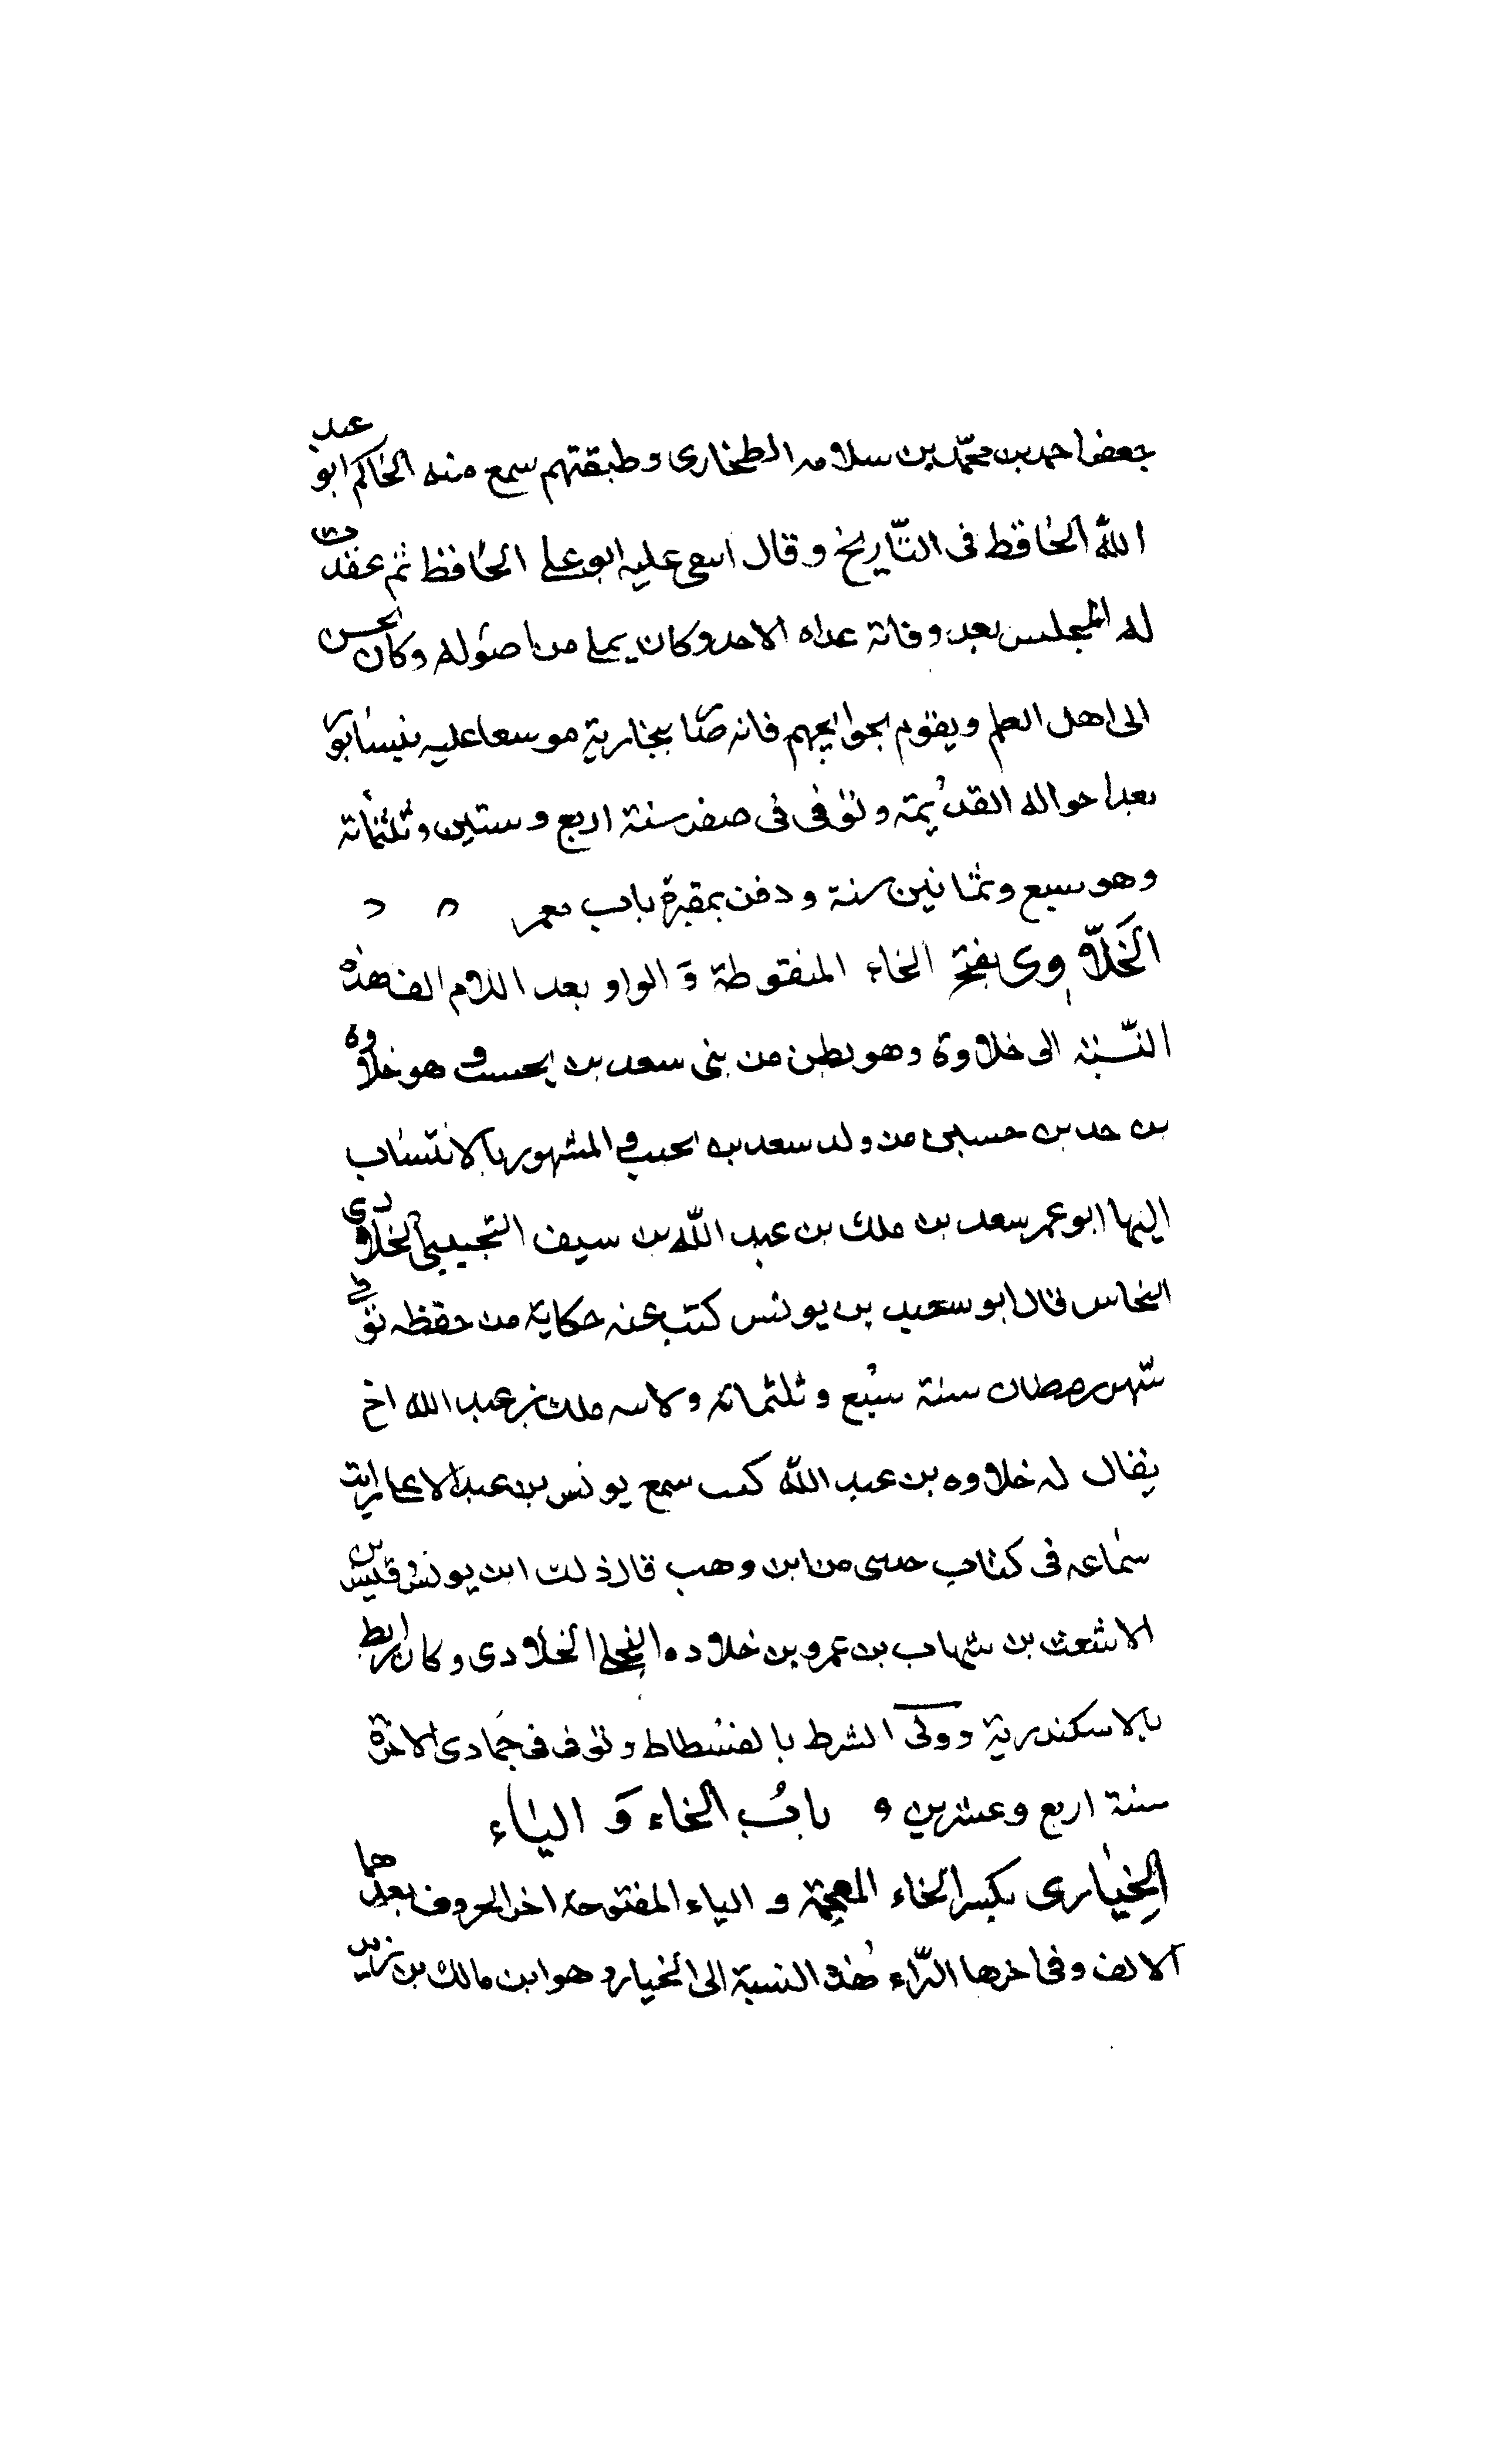 جعفر احمد بن محمّد بن سلامه الطحاوى وطبقتهم سمع منه الحاكم ابو عبد
اللّٰه الحافظ فى التّاريخ وقال انتقى عليه ابو على الحافظ ثم عقدت
له المجلس بعد وفاته غداه الاحد وكان يملى من اصوله وكان يحسن
الى اهل العلم ويقوم بحوايجهم فانه صار بتجارته موسعا عليه بنيسابور
بعد احواله القديمة وتوفى فى صفر سنة اربع وستين وثلثمائة
وهو سبع وثمانين سنة ودفن بمقبرة باب معمر
الخَلّاوِى بفتح الخاء المنقوطة وَ الواو بعد اللام الف هذه
النّسبة الى خلاوة وهو بطن من بنى سعد بن وهو خلاوه
بن من ولد سعد بن المشهور بالانتساب
اليها ابو عمر سعد بن ملك بن عبد اللّٰه بن سيف التجيبى الخلاوى
النخاس قال ابو سعيد بن يونس كتب عنه حكاية من حفظه توفى
شهر رمضان سنة سبع وثلثمائة ولابيه ملك بن عبد الله اخ
يقال له خلاوه بن عبد اللّٰه كتب سمع يونس بن عبد الاعلى رايت
سماعه فى كتاب من ابن وهب قال ذلك ابن يونس قيس بن
الاشعث بن شهاب بن عمرو بن خلاده الخلادى وكان يرابط
بالاسكندرية وولى الشرط بالفسطاط وتوفى فى جمادى الاخرة
سنة اربع وعشرين و بابُ الخاء وَ الياء
الخِيارى بكسر الخاء المعجمة و الياء المفتوحة اخر الحروف بعدهما
الالف وفى اخرها الرّاء هذه النسبة الى الخيار وهو ابن مالك بن زيد